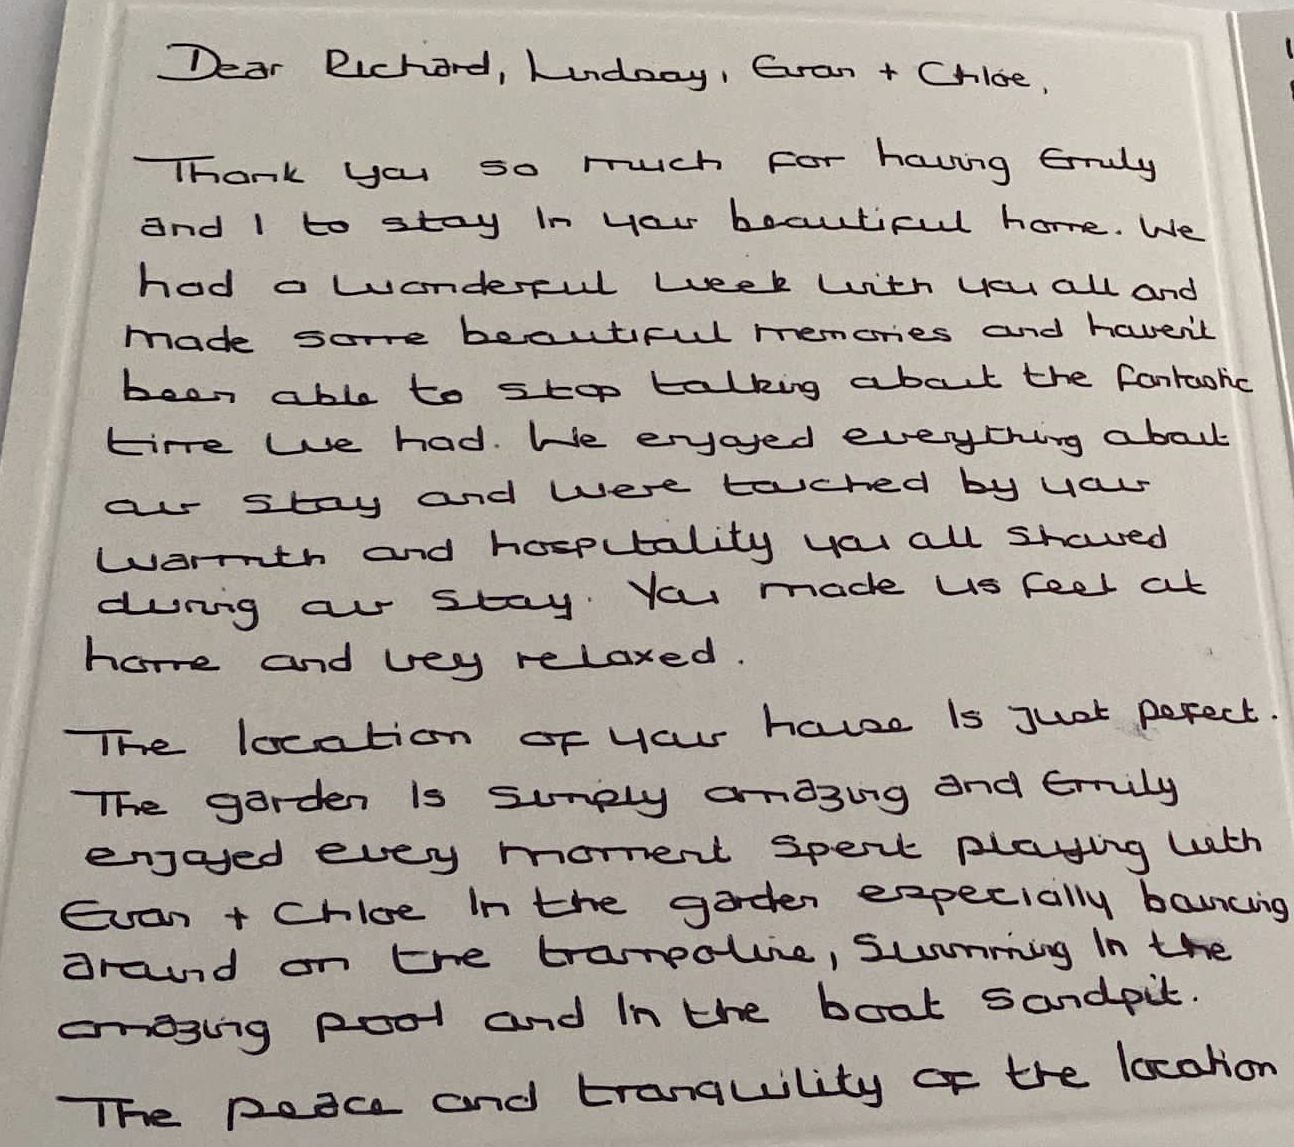 Dear Richard, Lindsay, Evan + Chloe,
Thank you so much for having Emily
and I to stay in your beautiful home. We
had a wonderful week with you all and
made some beautiful memories and haven't
been able to stop talking about the fantastic
time we had. We enjoyed everything about
our stay and were touched by your
warmth and hospitality you all showed
during our stay. You made us feel at
home and very relaxed.
The location of your house is just perfect.
The garden is simply amazing and Emily
enjoyed every moment spent playing with
Evan + Chloe in the garden especially bouncing
around on the trampoline, swimming in the
amazing pool and in the boat sandpit.
The peace and tranquility of the location